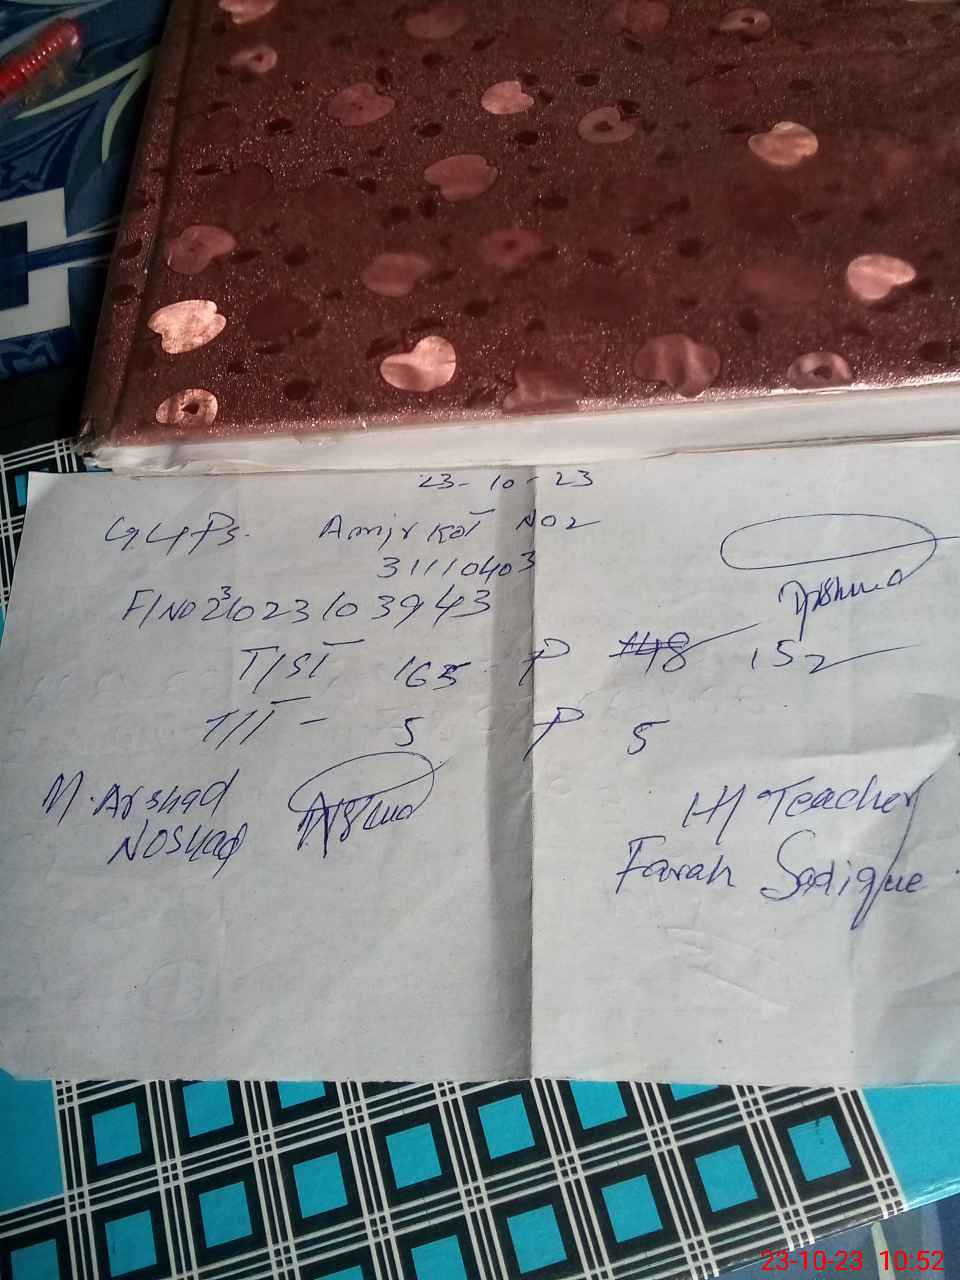 23-10-23
G.G.Ps. Amir Kot No2
31110403
T/ST 165 P 148 152
T/T - 5 P 5
M. Arshad
Noshad
H/Teacher
Farah Sadique
23-10-23 10:52